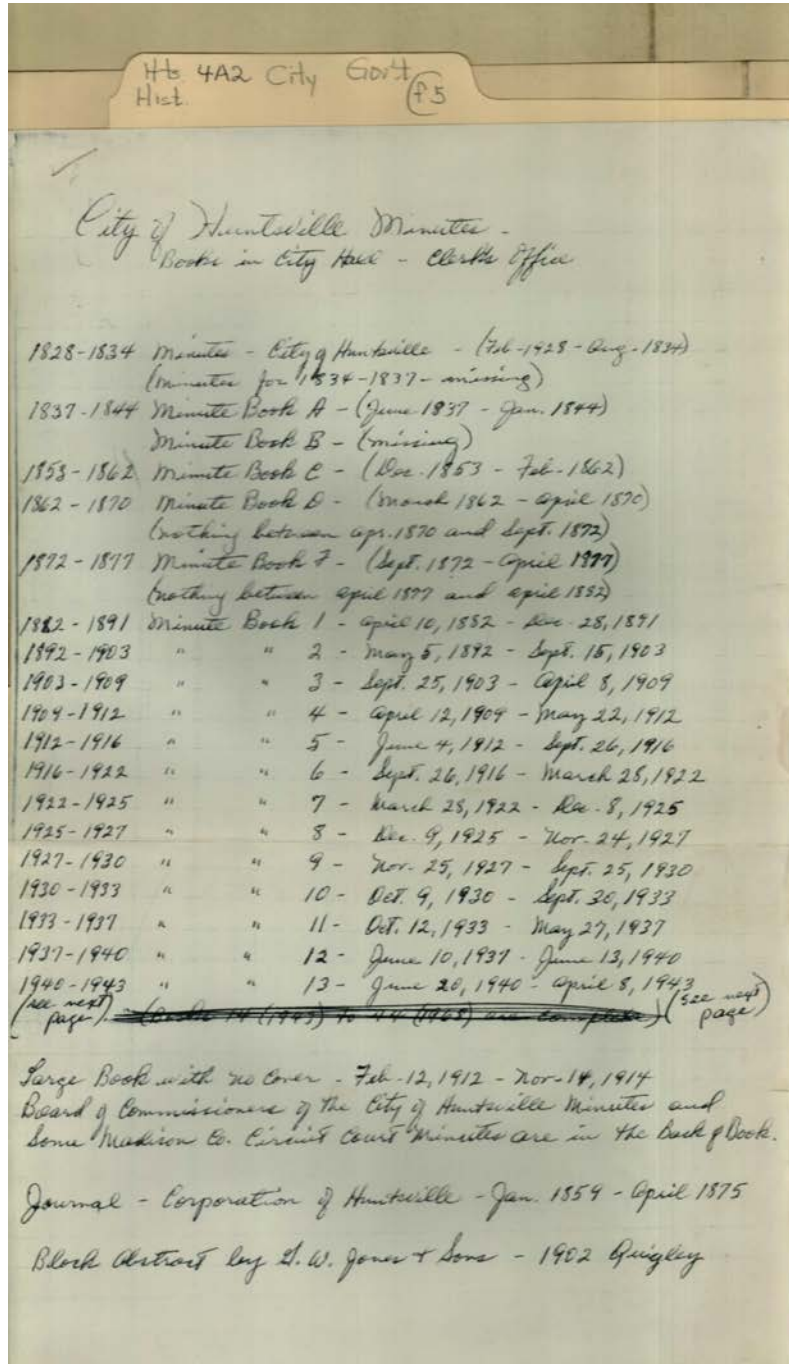 Hts 4A2 City Gov't
Hist. f5
City of Huntsville Minutes -
Books in City Hall - Clerk's Office
1828-1834 Minutes - City of Huntsville - (Feb-1928 - Aug-1834)
(Minutes for 1834-1837 - missing)
1837-1844 Minute Book A - (June 1837 - Jan. 1844)
Minute Book B - (missing)
1853-1862 Minute Book C - (Dec. 1853 - Feb-1862)
1862-1870 Minute Book D - (March 1862 - April 1870)
(nothing between Apr. 1870 and Sept. 1872)
1872-1877 Minute Book F - (Sept. 1872 - April 1877)
(nothing between April 1877 and April 1882)
1882-1891 Minute Book 1 - April 10, 1882 - Dec. 28, 1891
1892-1903 " " 2 - May 5, 1892 - Sept. 15, 1903
1903-1909 " " 3 - Sept. 25, 1903 - April 8, 1909
1909-1912 " " 4 - April 12, 1909 - May 22, 1912
1912-1916 " " 5 - June 4, 1912 - Sept. 26, 1916
1916-1922 " " 6 - Sept. 26, 1916 - March 28, 1922
1922-1925 " " 7 - March 28, 1922 - Dec. 8, 1925
1925-1927 " " 8 - Dec. 9, 1925 - Nov. 24, 1927
1927-1930 " " 9 - Nov. 25, 1927 - Sept. 25, 1930
1930-1933 " " 10 - Oct. 9, 1930 - Sept. 30, 1933
1933-1937 " " 11 - Oct. 12, 1933 - May 27, 1937
1937-1940 " " 12 - June 10, 1937 - June 13, 1940
1940-1943 " " 13 - June 20, 1940 - April 8, 1943
(see next page). (Books 14 (1943) to 44 (1968) are complete) (see next page)
Large Book with no Cover - Feb-12, 1912 - Nov-14, 1914
Board of Commissioners of the City of Huntsville Minutes and
Some Madison Co. Circuit Court Minutes are in the Back of Book.
Journal - Corporation of Huntsville - Jan. 1859 - April 1875
Block Abstract by G. W. Jones + Sons - 1902 Quigley